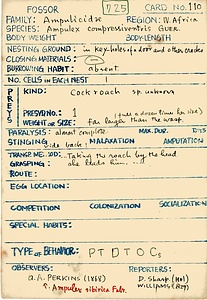 FOSSOR 725 CARD No. 110
FAMILY: Ampulicidae REGION: W. Africa
SPECIES: Ampulex compressiventris Guer.
BODY WEIGHT BODY LENGTH
NESTING GROUND: in key-holes of a door and other cracks
CLOSING MATERIALS: —
BURROWING HABIT: absent.
NO. CELLS IN EACH NEST
PREYS
KIND: Cockroach sp. unknown
PREYS NO.: 1
WEIGHT OR SIZE: far larger than the wasp.
PARALYSIS: almost complete. MAX. DUR.
STINGING MALAXATION AMPUTATION
TRANSP. METHOD: Taking the roach by the head
GRASPING: she leads him
ROUTE:
EGG LOCATION:
COMPETITION COLONIZATION SOCIALIZATION
SPECIAL HABITS:
TYPE OF BEHAVIOR: P T D T O Cs
OBSERVERS: REPORTERS:
G.A. PERKINS (1868) D. Sharp (1901)
Ampulex sibirica Fabr. Williams (1919)